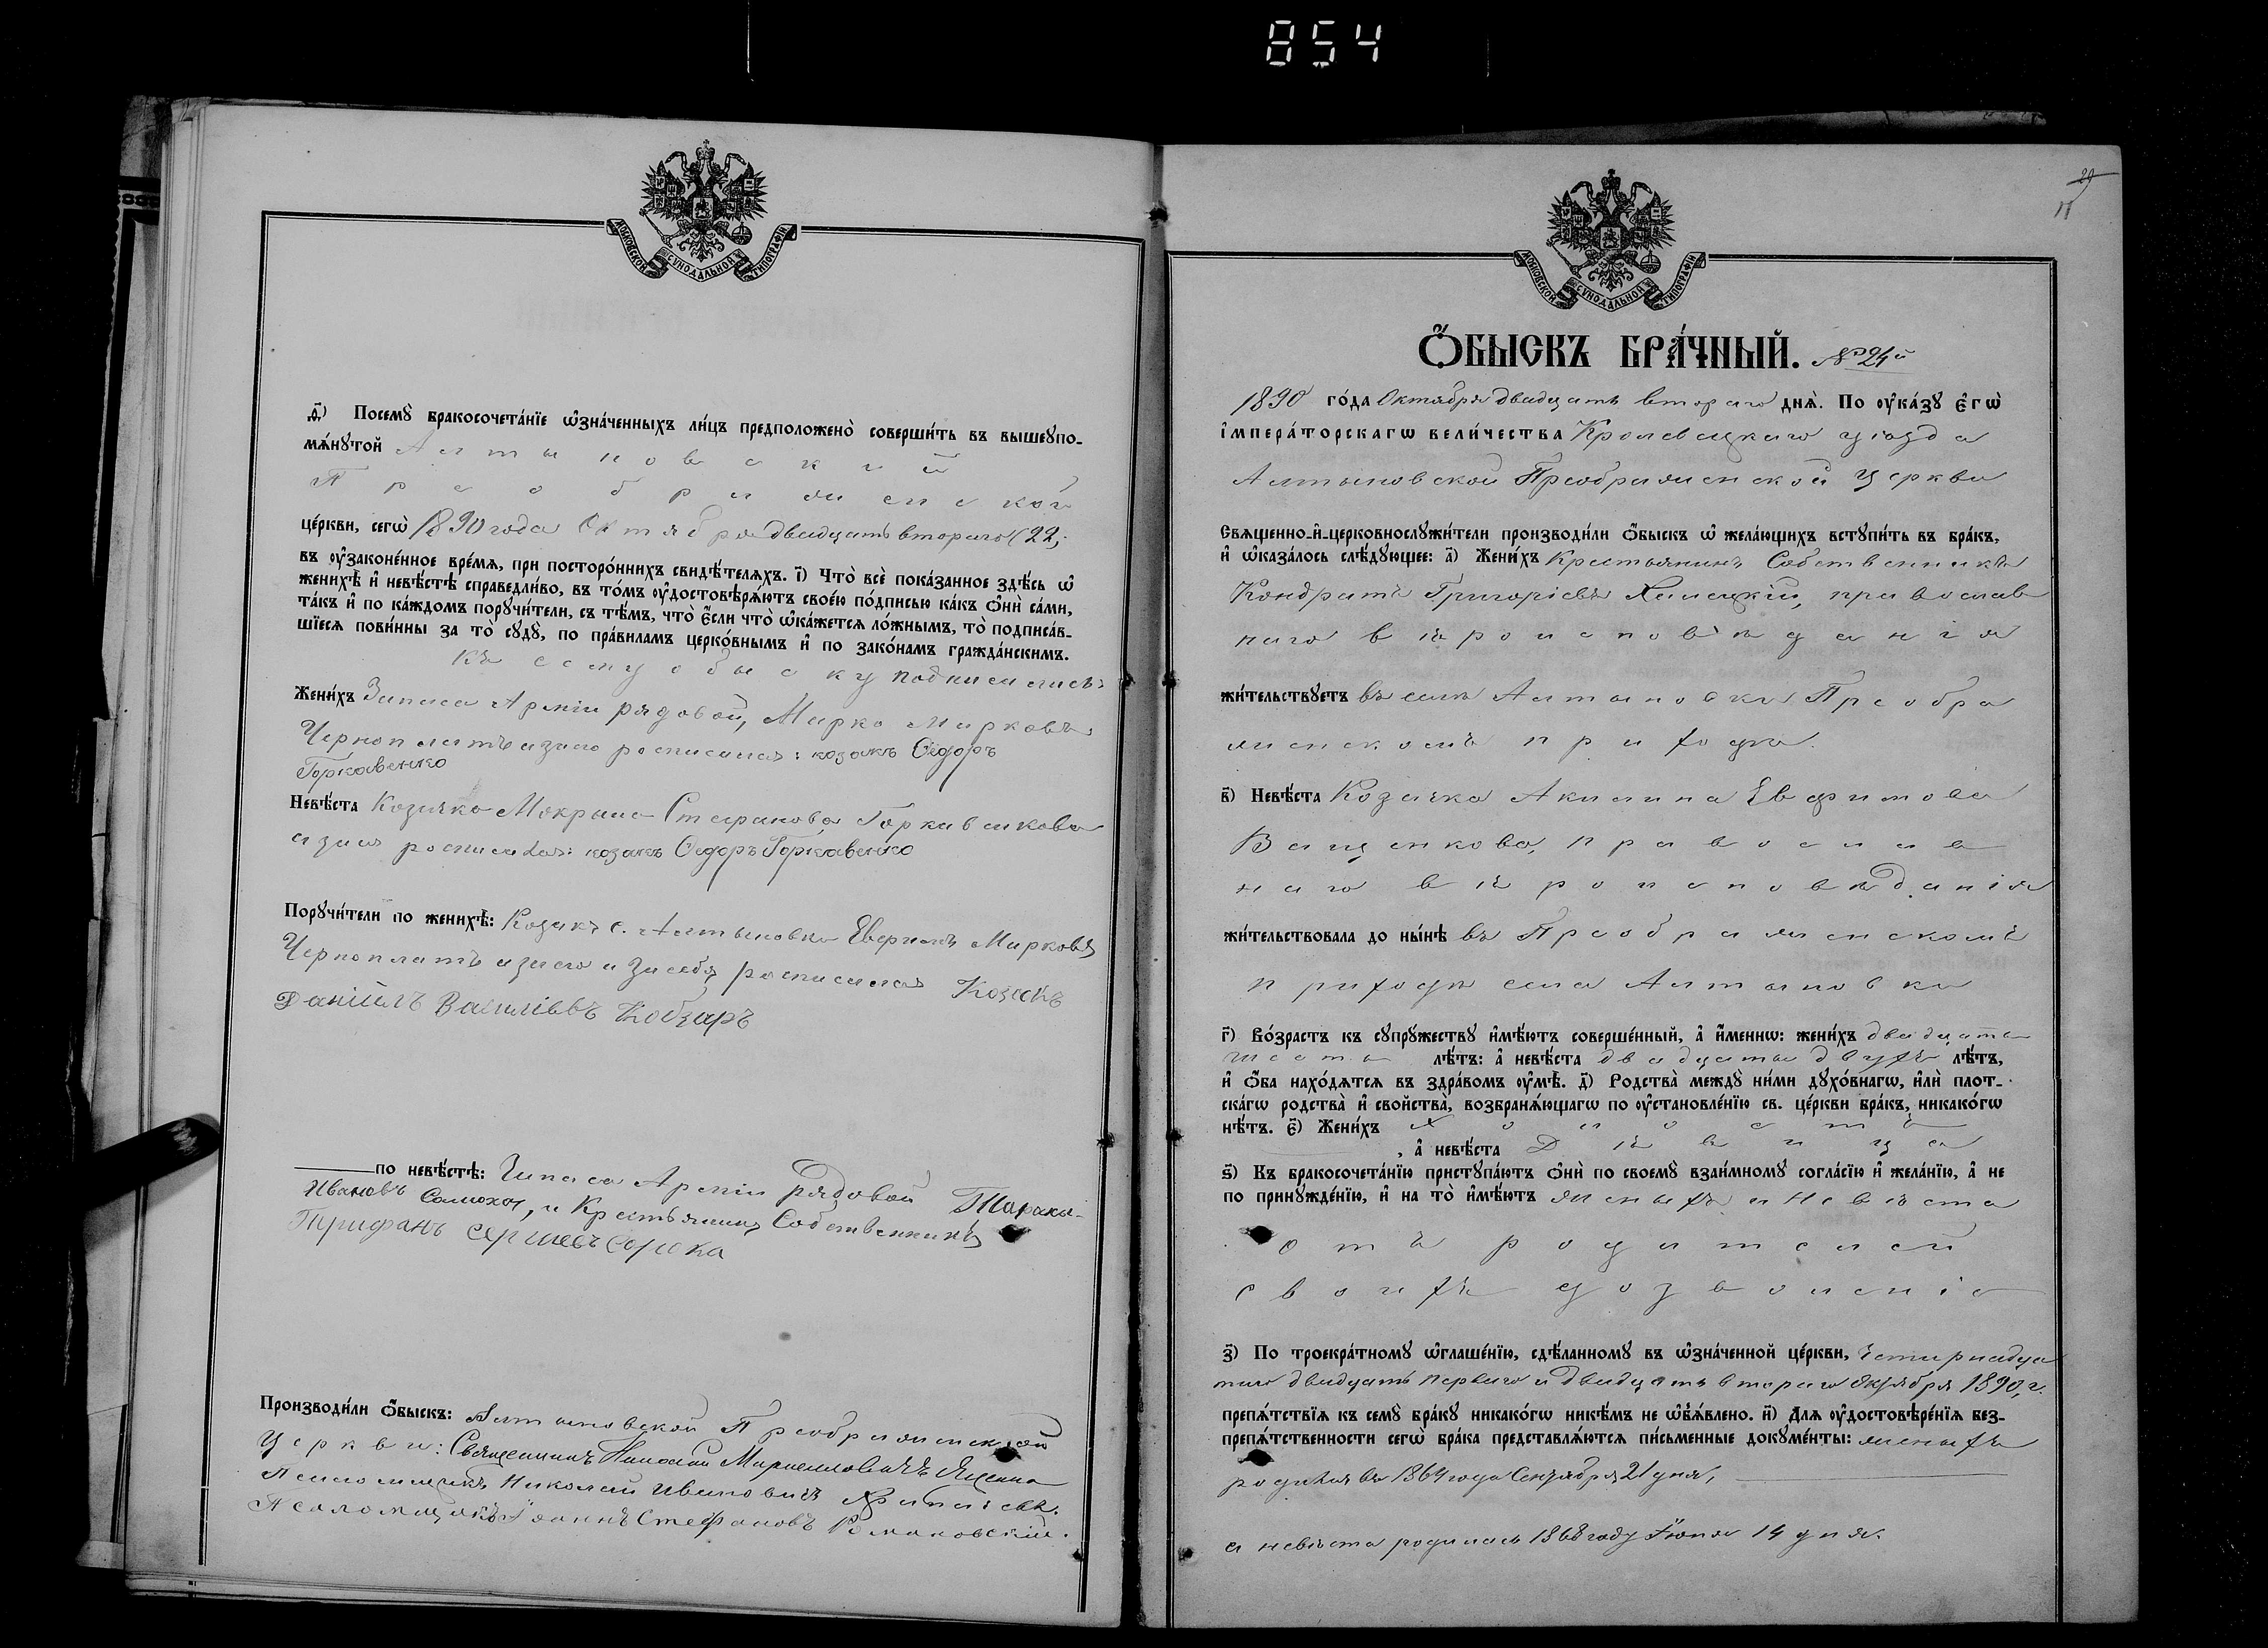 854
МОСКОВСКОЙ СѴНОДАЛЬНОЙ ТИПОГРАФІИ
д҃і) Посемꙋ̀ бракосочета́нїе ѡ҆зна́ченныхъ ли́цъ предположено̀ соверши́ть въ вышеꙋпо-
мѧ́нꙋтой Алтыновской
Преображенской
це́ркви, сегѡ̀ 1890 года Октября двадцать втораго (22)
въ ᲂу҆зако́ненное вре́мѧ, при посторо́ннихъ свидѣ́телѧхъ. і҃) Что̀ всѐ пока́занное здѣ́сь ѡ҆
женихѣ̀ и҆ невѣ́стѣ справедли́во, въ то́мъ ᲂу҆достовѣрѧ́ютъ свое́ю по́дписью ка́къ ѻ҆нѝ са́ми,
та́къ и҆ по ка́ждомъ порꙋчи́тели, съ тѣ́мъ, что̀ є҆́сли что̀ ѡ҆ка́жетсѧ ло́жнымъ, то̀ подписа́в-
шїесѧ пови́нны за то̀ сꙋдꙋ̀, по пра́виламъ церко́внымъ и҆ по зако́намъ гражда́нскимъ.
Къ сему обыску подписались:
Жени́хъ Запаса Арміи рядовой, Марко Марковъ
Черноплатъ а за него росписался: козакъ Ѳедоръ
Горкавенко
Невѣ́ста Козачка Мокрына Стефанова Горкавенкова
а за нея росписался: козакъ Ѳедоръ Горкавенко
Порꙋчи́тели по женихѣ̀: Козакъ с. Алтыновки Марковъ
Черноплатъ а за него и за себя росписался Козакъ
Даніилъ Василіевъ Кобзаръ
по невѣ́стѣ: Запаса Арміи рядовой
Ивановъ Самоха, и Крестьянинъ Собственникъ
Трифанъ Сергіевъ Сорока
Производи́ли ѻ҆́быскъ: Алтыновской Преображенской
Церкви: Священникъ
Псаломщикъ Николай Ивановичъ
Псаломщикъ Іоаннъ Стефановъ Романовскій.
29
МОСКОВСКОЙ СѴНОДАЛЬНОЙ ТИПОГРАФІИ
Ѻ҆́БЫСКЪ БРА́ЧНЫЙ. № 24й
1890 го́да Октября двадцать втораго днѧ̀. По ᲂу҆ка́зꙋ є҆гѡ̀
і҆мпера́торскагѡ вели́чества Кролевецкаго уѣзда
Алтыновской Преображенской церкви
Свѧщенно-и҆-церковнослꙋжи́тели производи́ли ѻ҆́быскъ ѡ҆ жела́ющихъ встꙋпи́ть въ бра́къ,
и҆ ѡ҆каза́лось слѣ́дꙋющее: а҃) Жени́хъ Крестьянинъ Собственникъ
Кондратъ Григоріевъ православ
наго вѣроисповѣданія
жи́тельствꙋетъ въ селѣ Алтыновки Преобра
женскомъ приходѣ.
в҃) Невѣ́ста Козачка Акилина Евфимова
Ващенкова, православ
наго вѣроисповѣданія
жи́тельствовала до ны́нѣ въ Преображенскомъ
приходѣ села Алтыновки
г҃) Во́зрастъ къ сꙋпрꙋ́жествꙋ и҆мѣ́ютъ соверше́нный, а҆ и҆́меннѡ: жени́хъ двадцати
шести лѣ́тъ: а҆ невѣ́ста двадцати двухъ лѣ́тъ,
и҆ ѻ҆́ба нахо́дѧтсѧ въ здра́вомъ ᲂу҆мѣ̀. д҃) Родства̀ междꙋ̀ ни́ми дꙋхо́внагѡ, и҆лѝ плот-
ска́гѡ родства̀ и҆ свойства̀, возбранѧ́ющагѡ по ᲂу҆становле́нїю св. це́ркви бра́къ, никако́гѡ
нѣ́тъ. є҃) Жени́хъ Холостъ
, а҆ невѣ́ста Дѣвица
ѕ҃) Къ бракосочета́нїю пристꙋпа́ютъ ѻ҆нѝ по своемꙋ̀ взаи́мномꙋ согла́сїю и҆ жела́нїю, а҆ не
по принꙋжде́нїю, и҆ на то̀ и҆мѣ́ютъ женихъ и невѣста
отъ родителей
своихъ дозволеніе
з҃) По троекра́тномꙋ ѡ҆глаше́нїю, сдѣ́ланномꙋ въ ѡ҆зна́ченной це́ркви, четырнадца
таго двадцать перваго и двадцать втораго Октября 1890, г.
препѧ́тствїѧ къ семꙋ̀ бра́кꙋ никако́гѡ никѣ́мъ не ѡ҆б̾ѧ́влено. и҃) Длѧ ᲂу҆достовѣре́нїѧ без-
препѧ́тственности сегѡ̀ бра́ка представлѧ́ютсѧ пи́сьменные докꙋме́нты: женихъ
родился въ 1864 года Сентября 21 дня,
а невѣста родилась 1868 году Іюня 14 дня.